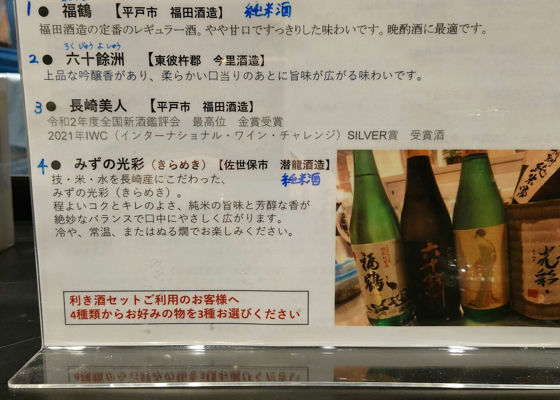 1 ● 福鶴 【平戸市 福田酒造】 純米酒
福田酒造の定番のレギュラー酒。やや甘口ですっきりした味わいです。晩酌酒に最適です。
ろくじゅうよしゅう
2 ● 六十餘洲 【東彼杵郡 今里酒造】
上品な吟醸香があり、柔らかい口当りのあとに旨味が広がる味わいです。
3 ● 長崎美人 【平戸市 福田酒造】
令和2年度全国新酒鑑評会 最高位 金賞受賞
2021年IWC（インターナショナル・ワイン・チャレンジ）SILVER賞 受賞酒
4 ● みずの光彩（きらめき）【佐世保市 潜龍酒造】
純米酒
技・米・水を長崎産にこだわった、
みずの光彩（きらめき）。
程よいコクとキレのよさ、純米の旨味と芳醇な香が
絶妙なバランスで口中にやさしく広がります。
冷や、常温、またはぬる燗でお楽しみください。
利き酒セットご利用のお客様へ
4種類からお好みの物を3種お選びください
福鶴
六十餘洲
光彩